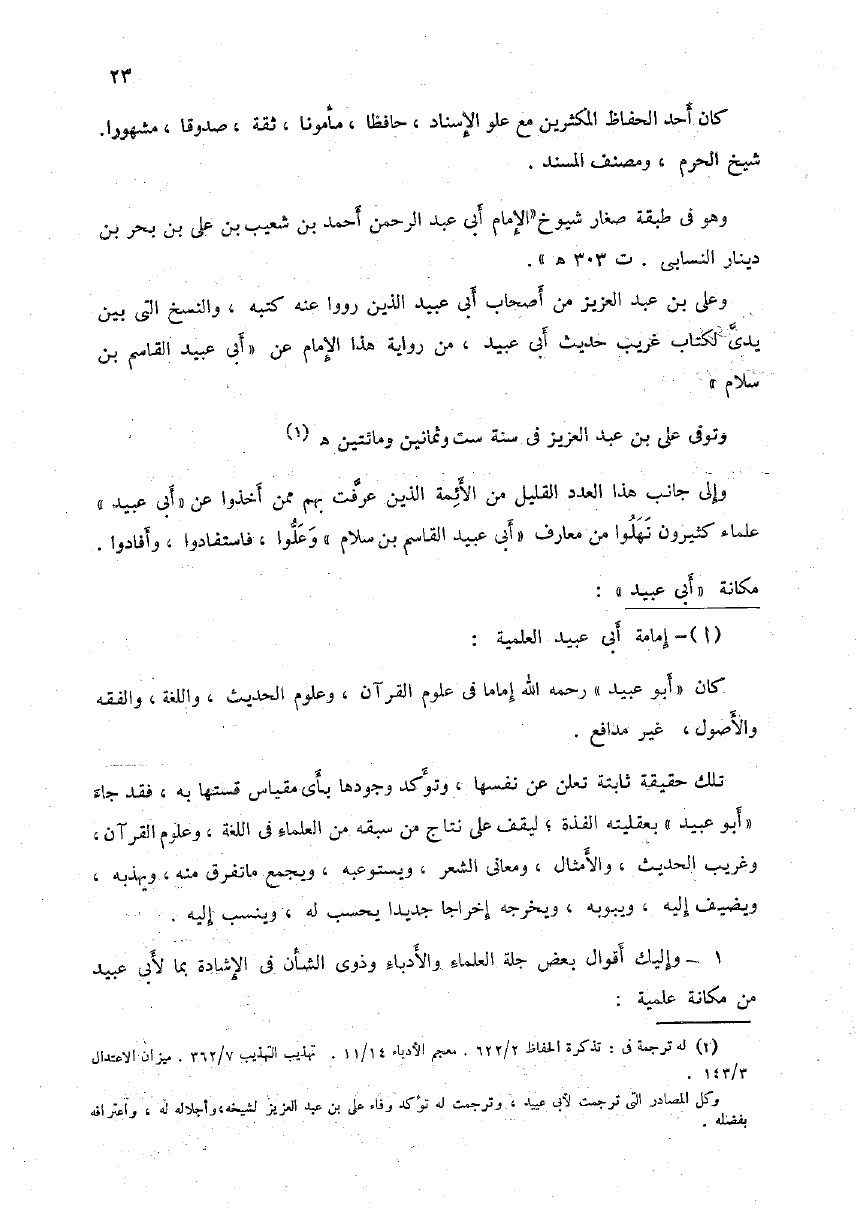 ٢٣
كان أحد الحفاظ المكثرين مع علو الإسناد ، حافظا ، مأمونا ، ثقة ، صدوقا ، مشهورا.
شيخ الحرم ، ومصنف المسند .
وهو فى طبقة صغار شيوخ «الإمام أبى عبد الرحمن أحمد بن شعيب بن على بن بحر بن
دينار النسابى . ت ٣٠٣ ه » .
وعلى بن عبد العزيز من أصحاب أبى عبيد الذين رووا عنه كتبه ، والنسخ التى بين
يدىَّ لكتاب غريب حديث أبى عبيد ، من رواية هذا الإمام عن «أبى عبيد القاسم بن
سلام »
وتوفى على بن عبد العزيز فى سنة ست وثمانين ومائتين ه (١)
وإلى جانب هذا العدد القليل من الأئمة الذين عرفّت بهم ممن أخذوا عن «أبى عبيد »
علماء كثيرون نَهَلُوا من معارف «أبى عبيد القاسم بن سلام » وَعَلُّوا ، فاستفادوا ، وأفادوا .
مكانة «أبى عبيد » :
(أ) – إمامة أبى عبيد العلمية :
كان «أبو عبيد » رحمه الله إماما فى علوم القرآن ، وعلوم الحديث ، واللغة ، والفقه
والأصول ، غير مدافع .
تلك حقيقة ثابتة تعلن عن نفسها ، وتؤكد وجودها بأى مقياس قستها به ، فقد جاء
«أبو عبيد » بعقليته الفذة ؛ ليقف على نتاج من سبقه من العلماء فى اللغة ، وعلوم القرآن ،
وغريب الحديث ، والأمثال ، ومعانى الشعر ، ويستوعبه ، ويجمع ماتفرق منه ، ويهذبه ،
ويضيف إليه ، ويبوبه ، ويخرجه إخراجا جديدا يحسب له ، وينسب إليه .
١ – وإليك أقوال بعض جلة العلماء والأدباء وذوى الشأن فى الإشادة بما لأبى عبيد
من مكانة علمية :
(١) له ترجمة فى : تذكرة الحفاظ ٦٢٢/٢ . معجم الأدباء ١١/١٤ . تهذيب التهذيب ٣٦٢/٧ . ميزان الاعتدال
١٤٣/٣ .
وكل المصادر التى ترجمت لأبى عبيد ، وترجمت له تؤكد وفاء على بن عبد العزيز لشيخه، وأجلاله له ، واعترافه
بفضله .